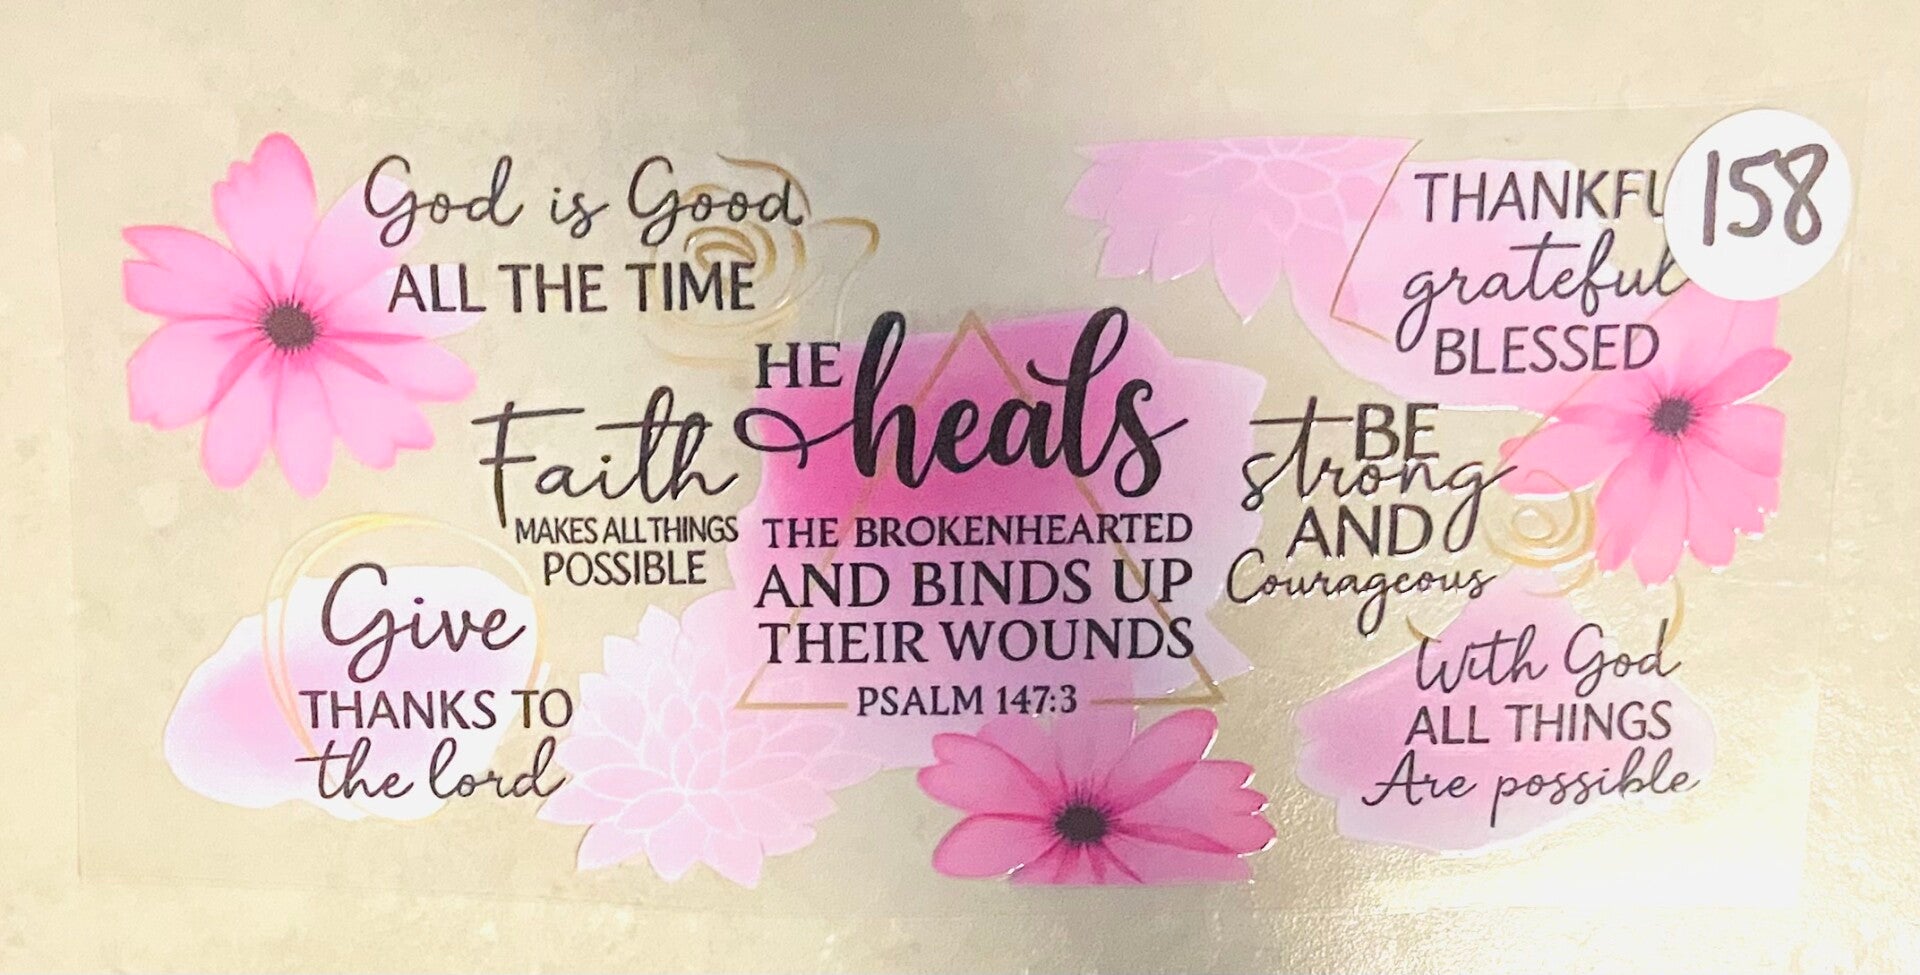 God is Good
ALL THE TIME
THANKFU
grateful
BLESSED
158
HE
heals
THE BROKENHEARTED
AND BINDS UP
THEIR WOUNDS
PSALM 147:3
Faith
MAKES ALL THINGS
POSSIBLE
BE
strong
AND
Courageous
Give
THANKS TO
the lord
With God
ALL THINGS
Are possible